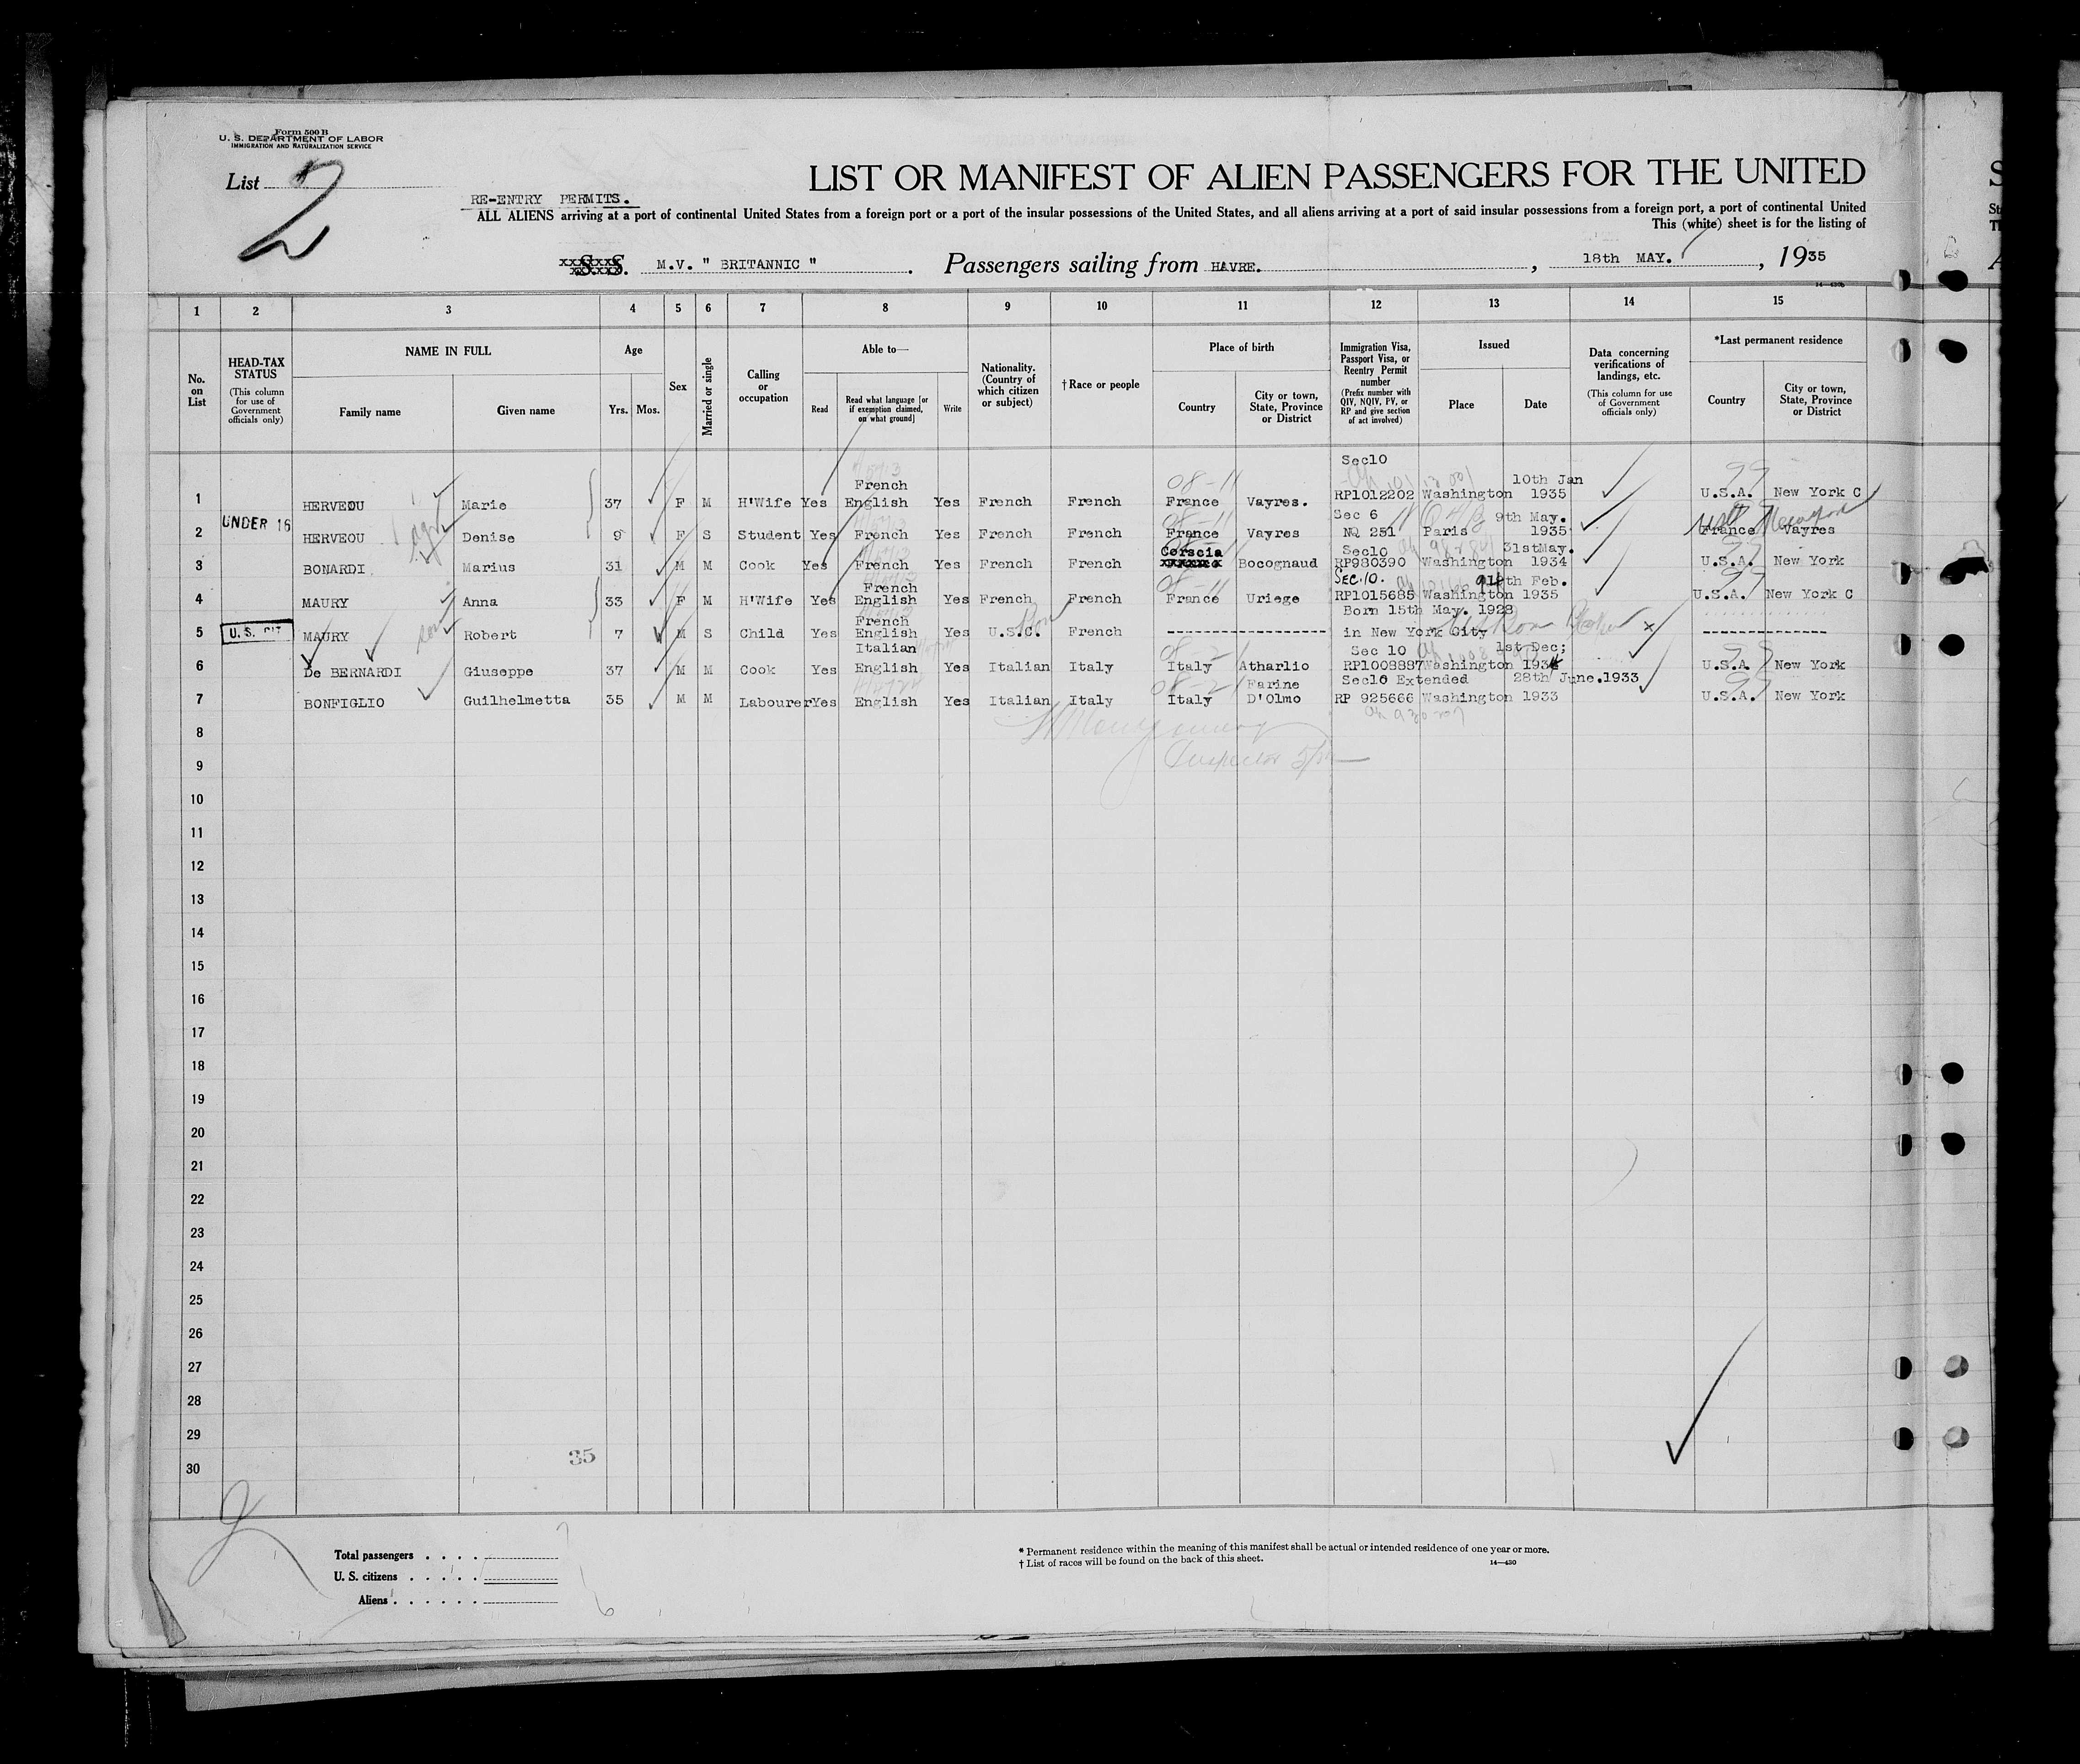 Form 500 B
U. S. DEPARTMENT OF LABOR
IMMIGRATION AND NATURALIZATION SERVICE
List 2
LIST OR MANIFEST OF ALIEN PASSENGERS FOR THE UNITED
RE-ENTRY PERMITS.
ALL ALIENS arriving at a port of continental United States from a foreign port or a port of the insular possessions of the United States, and all aliens arriving at a port of said insular possessions from a foreign port, a port of continental United
This (white) sheet is for the listing of
S. S. M.V. " BRITANNIC " . Passengers sailing from HAVRE. , 18th MAY. , 1935
14—430b
1 2 3 4 5 6 7 8 9 10 11 12 13 14 15
No. on List
HEAD-TAX STATUS
(This column for use of Government officials only)
NAME IN FULL
Family name Given name
Age
Yrs. Mos.
Sex
Married or single
Calling or occupation
Able to—
Read
Read what language [or if exemption claimed, on what ground]
Write
Nationality. (Country of which citizen or subject)
† Race or people
Place of birth
Country
City or town, State, Province or District
Immigration Visa, Passport Visa, or Reentry Permit number
(Prefix number with QIV, NQIV, PV, or RP and give section of act involved)
Issued
Place Date
Data concerning verifications of landings, etc.
(This column for use of Government officials only)
*Last permanent residence
Country
City or town, State, Province or District
Sec10
French 08-11 10th Jan 99
1 HERVEOU Marie 37 F M H'Wife Yes English Yes French French France Vayres. RP1012202 Washington 1935 U.S.A. New York C
UNDER 16 08-11 Sec 6 9th May.
2 HERVEOU Denise 9 F S Student Yes French Yes French French France Vayres NQ 251 Paris 1935 France Vayres
Corscia Sec10 31stMay. 99
3 BONARDI Marius 31 M M Cook Yes French Yes French French Bocognaud RP980390 Washington 1934 U.S.A. New York
French 08-11 SEC.10. 9th Feb. 99
4 MAURY Anna 33 F M H'Wife Yes English Yes French French France Uriege RP1015685 Washington 1935 U.S.A. New York C
French Born 15th May. 1928
5 U.S. CIT MAURY Robert 7 M S Child Yes English Yes U.S.C. French in New York City x
Italian 08-21 Sec 10 1st Dec; 99
6 De BERNARDI Giuseppe 37 M M Cook Yes English Yes Italian Italy Italy Atharlio RP1008887 Washington 1934 U.S.A. New York
08-21 Farine Sec10 Extended 28th June.1933 99
7 BONFIGLIO Guilhelmetta 35 M M Labourer Yes English Yes Italian Italy Italy D'Olmo RP 925666 Washington 1933 U.S.A. New York
8
9 Inspector
10
11
12
13
14
15
16
17
18
19
20
21
22
23
24
25
26
27
28
29
35
30
2
Total passengers . . . .
U. S. citizens . . . . .
Aliens . . . . . .
* Permanent residence within the meaning of this manifest shall be actual or intended residence of one year or more.
† List of races will be found on the back of this sheet.
14—430